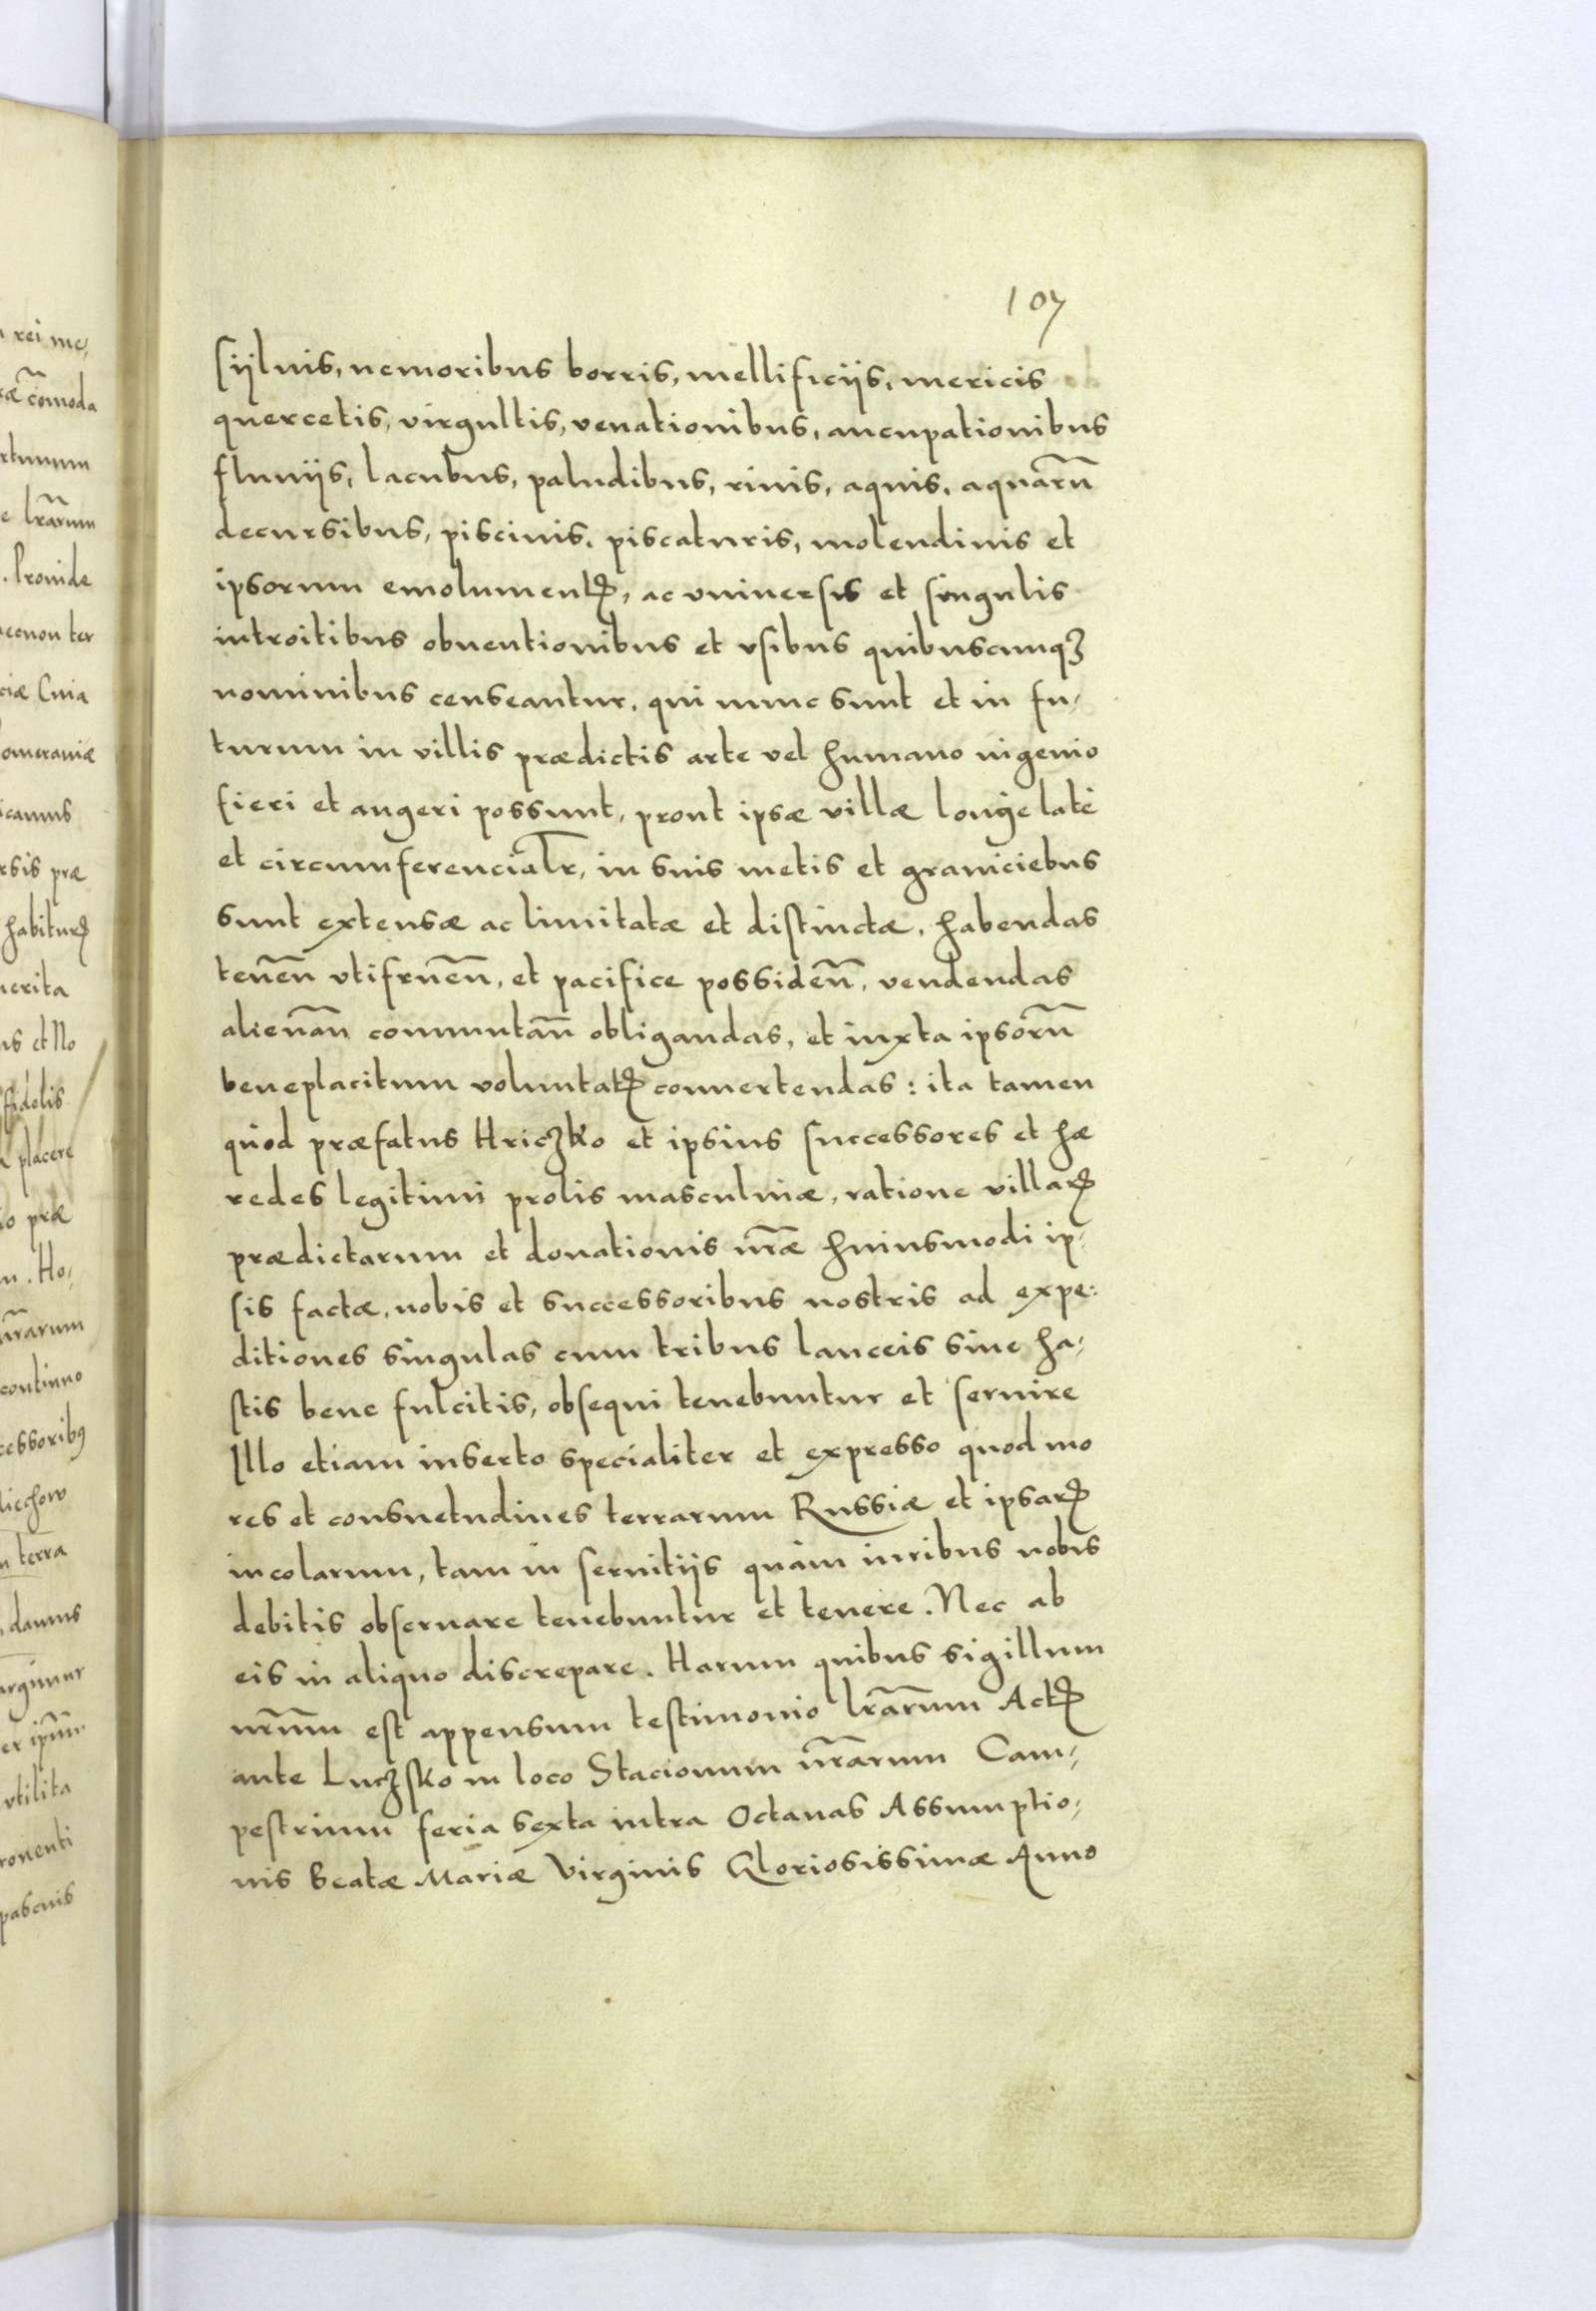 107
sijluis, nemoribus borris, mellificijs, mericis
quercetis, virgultis, venationibus, aucupationibus
fluuijs, lacubus, paludibus, riuis, aquis, aquarũ
decursibus, piscinis, piscaturis, molendinis et
ipsorum emolumentꝭ, ac vniuersis et singulis
introitibus obuentionibus et vsibus quibuscunqꝫ
nominibus censeantur, qui nunc sunt et in fu-
turum in villis prædictis arte vel humano ingenio
fieri et augeri possunt, prout ipsæ villæ longè latè
et circumferencialr̃, in suis metis et graniciebus
sunt extensæ ac limitatæ et distinctæ, habendas
teneñ vtifrueñ, et pacifice possideñ, vendendas
alienañ commutañ obligandas, et iuxta ipsorũ
beneplacitum voluntatꝭ conuertendas: ita tamen
quòd præfatus Hriczko et ipsius successores et hæ
redes legitimi prolis masculinæ, ratione villarꝭ
prædictarum et donationis nr̃æ huiusmodi ip-
sis factæ, nobis et successoribus nostris ad expe-
ditiones singulas cum tribus lanceis siue ha-
stis bene fulcitis, obsequi tenebuntur et seruire
Illo etiam inserto specialiter et expresso quod mo
res et consuetudines terrarum Russiæ et ipsarꝭ
incolarum, tam in seruitijs quàm iuribus nobis
debitis obseruare tenebuntur et tenere. Nec ab
eis in aliquo discrepare. Harum quibus sigillum
nr̃um est appensum testimonio lr̃arum Actꝭ
ante Luczsko in loco Stacionum nr̃arum Cam-
pestrium feria sexta intra Octauas Assumptio-
nis Beatæ Mariæ Virginis Gloriosissimæ Anno